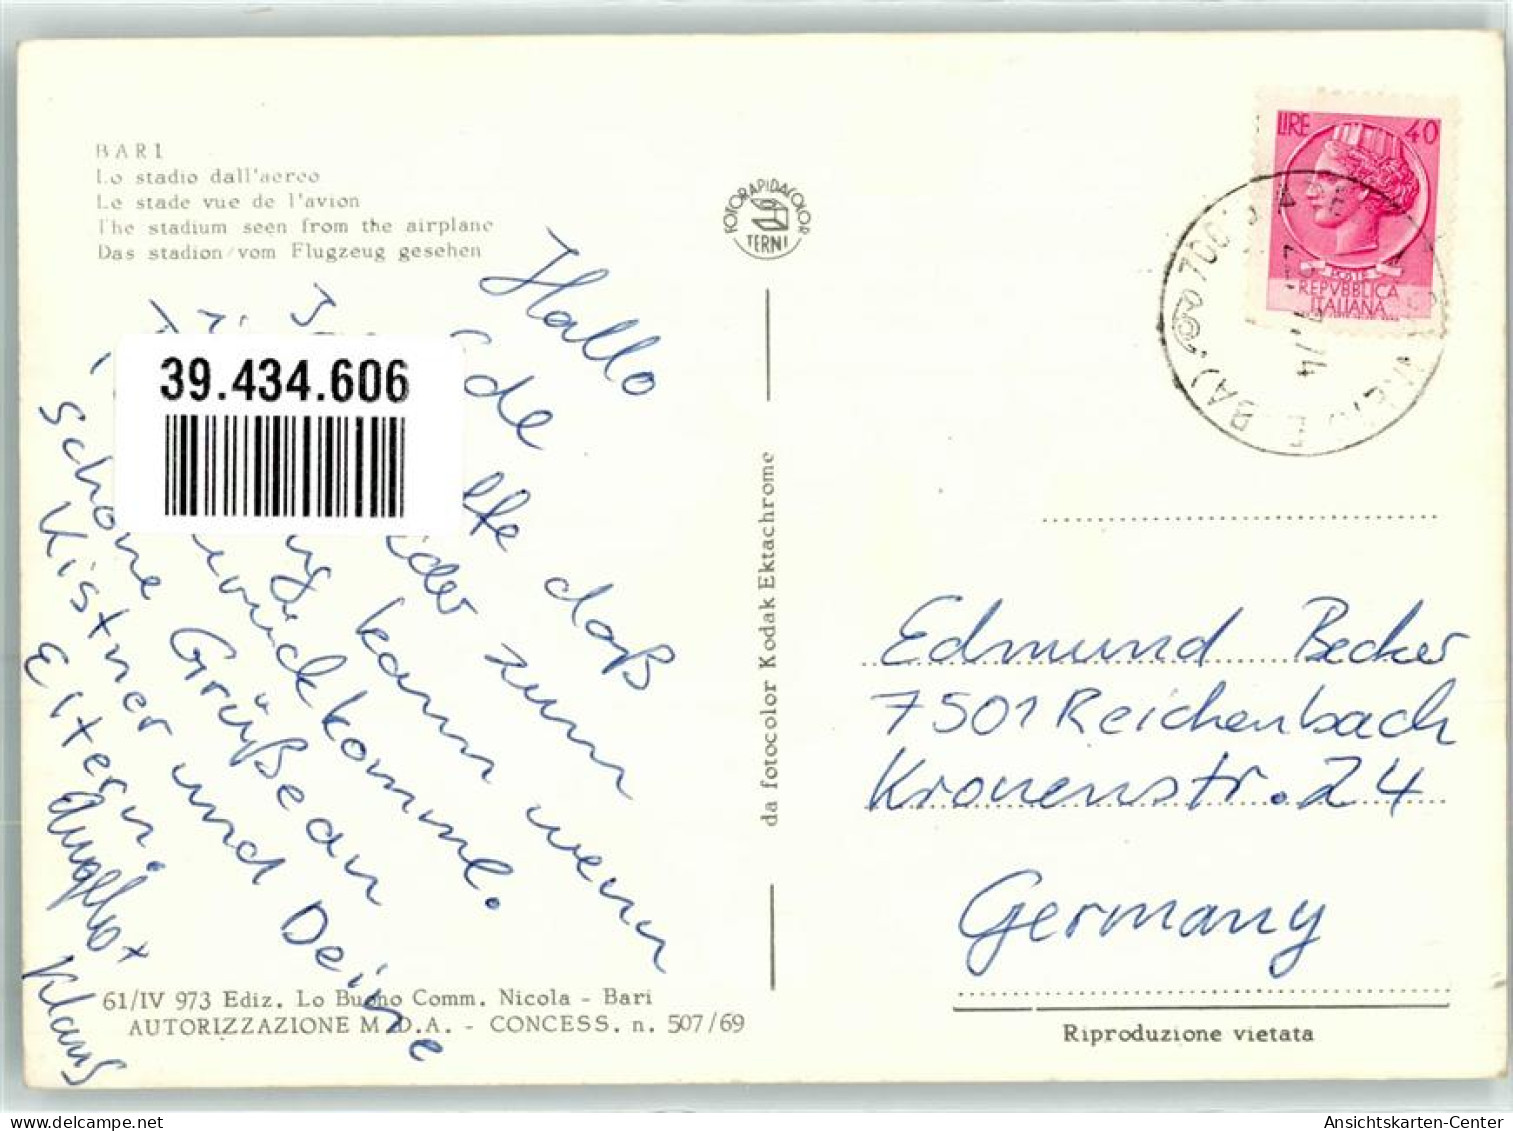 BARI
Lo stadio dall'aereo
Le stade vue de l'avion
The stadium seen from the airplane
Das stadion vom Flugzeug gesehen
39.434.606
Hallo
de
daß
zum
kann wenn
zurückkomme.
Schöne Grüße an
Kistner und Deine
Eltern.
Klaus
61/IV 973 Ediz. Lo Buono Comm. Nicola - Bari
AUTORIZZAZIONE M.D.A. - CONCESS. n. 507/69
FOTORAPIDACOLOR
TERNI
da fotocolor Kodak Ektachrome
LIRE 40
POSTE
REPVBBLICA
ITALIANA
Edmund Becker
7501 Reichenbach
Kronenstr. 24
Germany
Riproduzione vietata
Ansichtskarten-Center